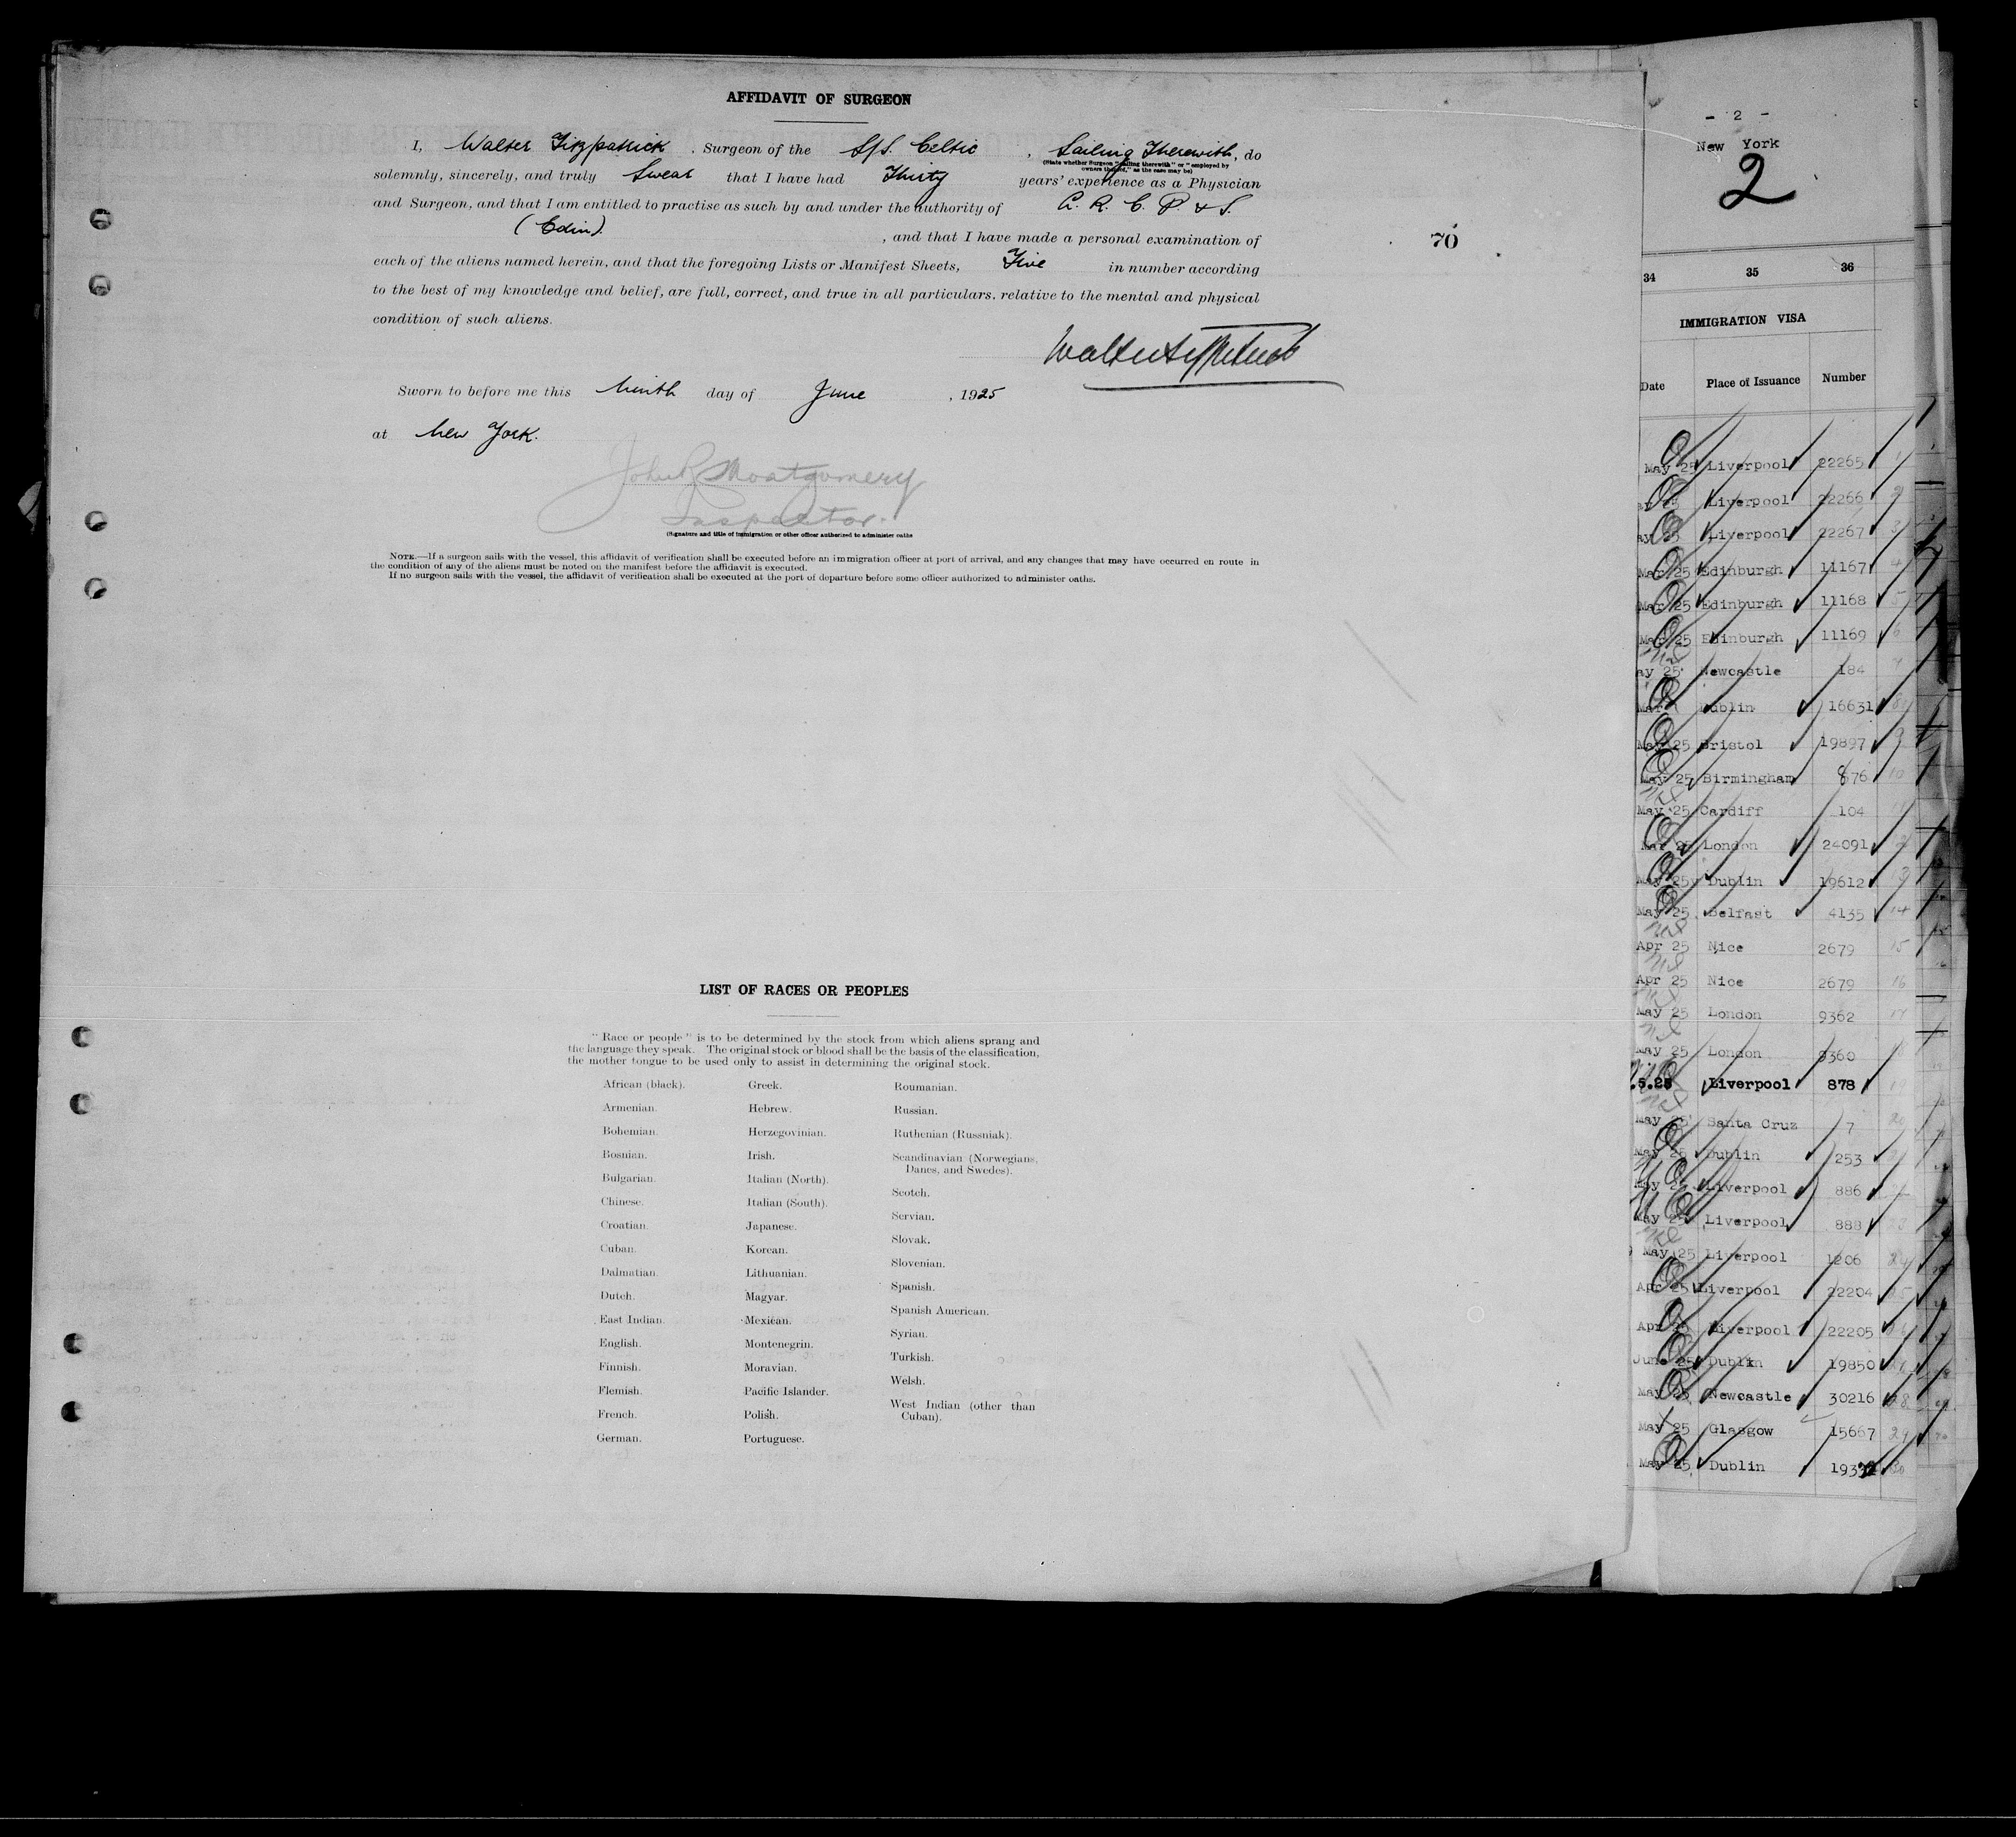 AFFIDAVIT OF SURGEON
I, Walter Fitzpatrick, Surgeon of the S/S. Celtic, Sailing Therewith, do
(State whether Surgeon "sailing therewith" or "employed by
owners thereof," as the case may be)
solemnly, sincerely, and truly Swear that I have had Thirty years' experience as a Physician
and Surgeon, and that I am entitled to practise as such by and under the authority of L. R. C. P. & S.
(Edin). , and that I have made a personal examination of
each of the aliens named herein, and that the foregoing Lists or Manifest Sheets, Five in number according
to the best of my knowledge and belief, are full, correct, and true in all particulars, relative to the mental and physical
condition of such aliens.
Sworn to before me this Ninth day of June, 1925
at New York.
John R Montgomery
Inspector.
(Signature and title of immigration or other officer authorized to administer oaths
NOTE.—If a surgeon sails with the vessel, this affidavit of verification shall be executed before an immigration officer at port of arrival, and any changes that may have occurred en route in
the condition of any of the aliens must be noted on the manifest before the affidavit is executed.
If no surgeon sails with the vessel, the affidavit of verification shall be executed at the port of departure before some officer authorized to administer oaths.
70
LIST OF RACES OR PEOPLES
"Race or people" is to be determined by the stock from which aliens sprang and
the language they speak. The original stock or blood shall be the basis of the classification,
the mother tongue to be used only to assist in determining the original stock.
African (black).
Armenian.
Bohemian.
Bosnian.
Bulgarian.
Chinese.
Croatian.
Cuban.
Dalmatian.
Dutch.
East Indian.
English.
Finnish.
Flemish.
French.
German.
Greek.
Hebrew.
Herzegovinian.
Irish.
Italian (North).
Italian (South).
Japanese.
Korean.
Lithuanian.
Magyar.
Mexican.
Montenegrin.
Moravian.
Pacific Islander.
Polish.
Portuguese.
Roumanian.
Russian.
Ruthenian (Russniak).
Scandinavian (Norwegians,
Danes, and Swedes).
Scotch.
Servian.
Slovak.
Slovenian.
Spanish.
Spanish American.
Syrian.
Turkish.
Welsh.
West Indian (other than
Cuban).
- 2 -
New York
2
34 35 36
IMMIGRATION VISA
Date Place of Issuance Number
May 25 Liverpool 22265 1
ay 25 Liverpool 22266 2
ay 25 Liverpool 22267 3
Mar 25 Edinburgh 11167 4
Mar 25 Edinburgh 11168 5
Mar 25 Edinburgh 11169 6
ay 25 Newcastle 184 7
Mar Dublin 16631 8
May 25 Bristol 19897 9
May 25 Birmingham 876 10
May 25 Cardiff 104 11
Mar 25 London 24091 12
May 25 Dublin 19612 13
May 25 Belfast 4135 14
Apr 25 Nice 2679 15
Apr 25 Nice 2679 16
May 25 London 9362 17
May 25 London 9360
.5.25 Liverpool 878 19
May 25 Santa Cruz 7 20
May 25 Dublin 253
May 25 Liverpool 886 22
May 25 Liverpool 888 23
May 25 Liverpool 1206 24
Apr 25 Liverpool 22204 25
Apr 25 Liverpool 22205 26
June 25 Dublin 19850
May 25 Newcastle 30216 28
May 25 Glasgow 15667 29
May 25 Dublin 30